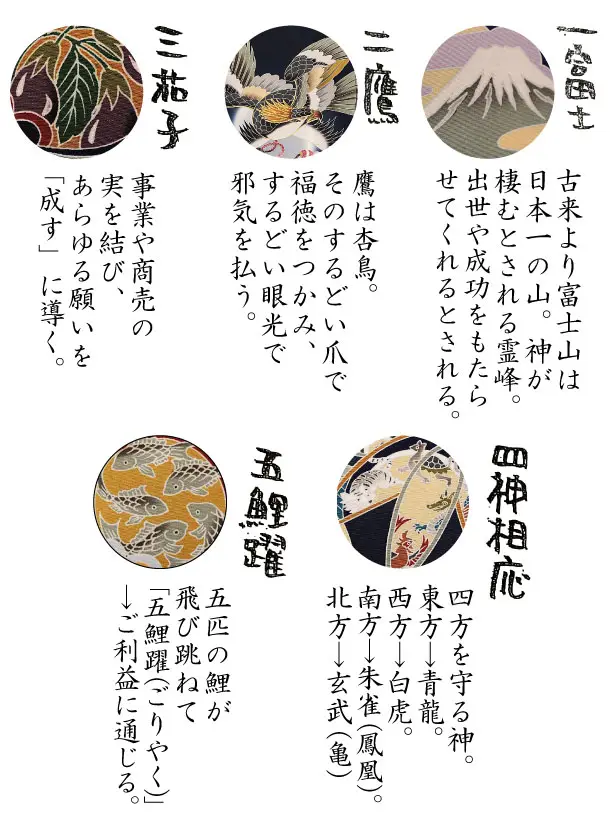 一富士
古来より富士山は
日本一の山。神が
棲むとされる霊峰。
出世や成功をもたら
せてくれるとされる。
二鷹
鷹は杏鳥。
そのするどい爪で
福徳をつかみ、
するどい眼光で
邪気を払う。
三茄子
事業や商売の
実を結び、
あらゆる願いを
「成す」に導く。
四神相応
四方を守る神。
東方→青龍。
西方→白虎。
南方→朱雀(鳳凰)。
北方→玄武(亀)
五鯉躍
五匹の鯉が
飛び跳ねて
「五鯉躍(ごりやく)」
→ご利益に通じる。